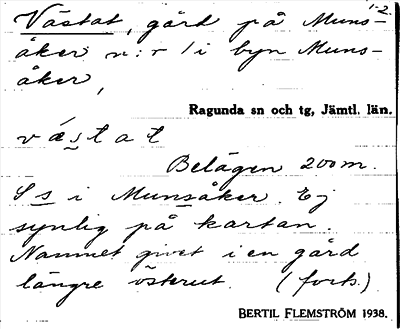 1-2.
Västat, gård på Muns-
åker n:r 1 i byn Muns-
åker,
Ragunda sn och tg, Jämtl. län.
västat
Belägen 200 m.
S s i Munsåker. Ej
synlig på kartan.
Namnet givet i en gård
längre österut. (forts.)
BERTIL FLEMSTRÖM 1938.